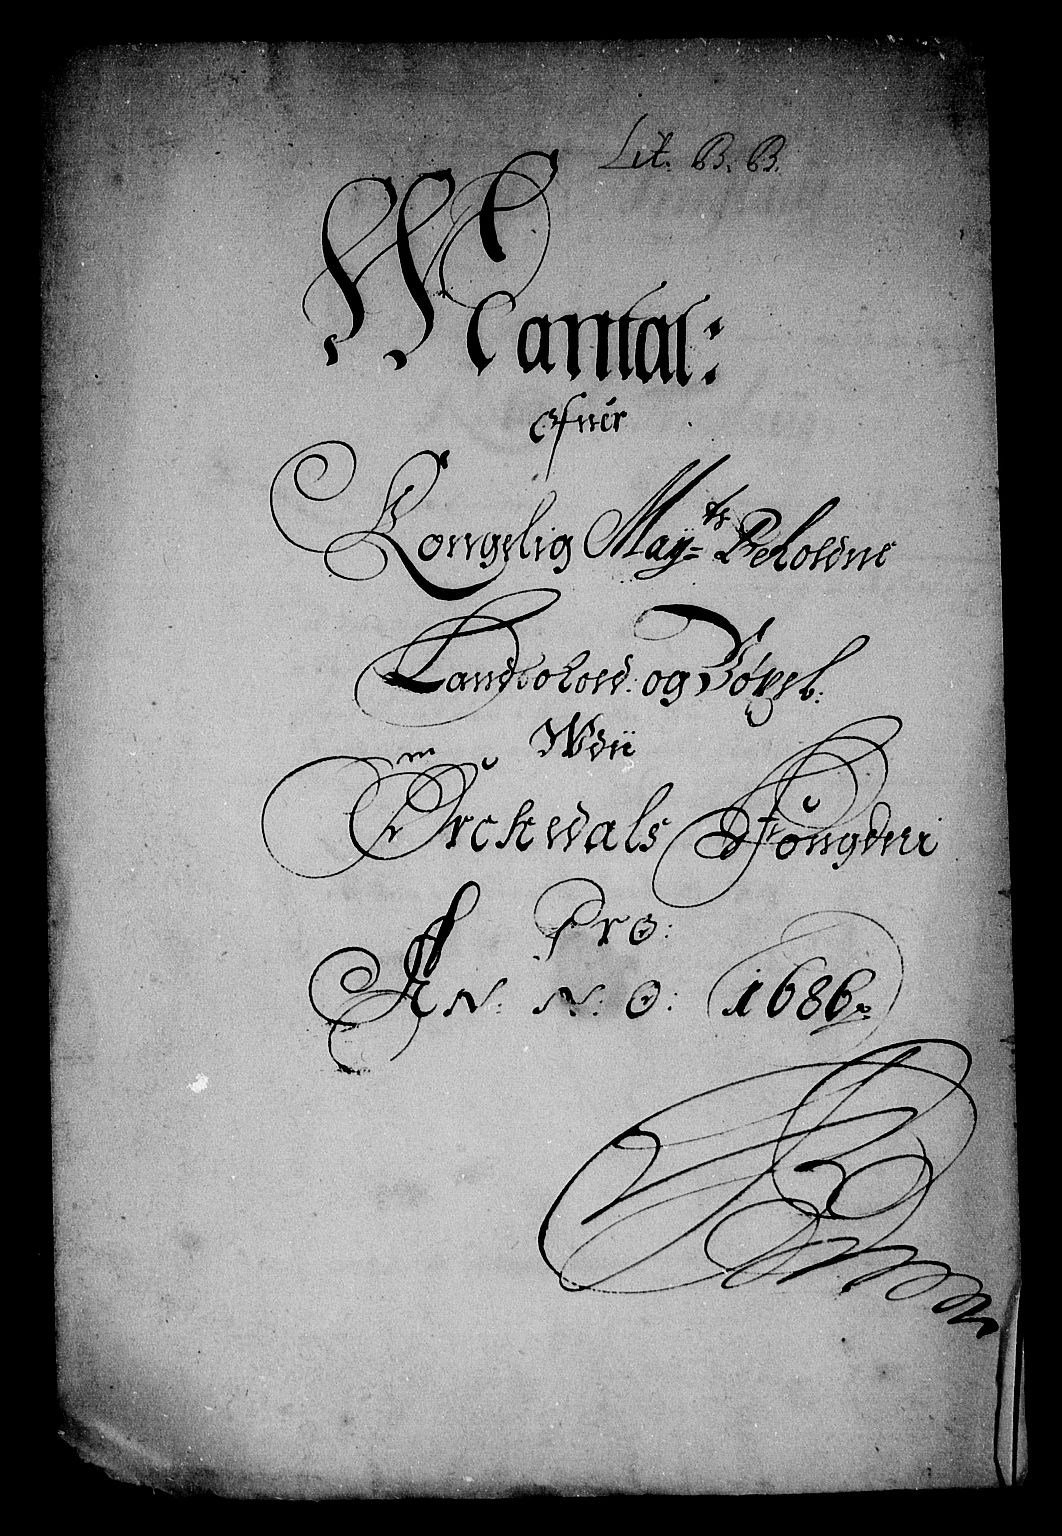 Lit. B. B.
Mantal:
Ofuer
Kongelig May=ts Beholdne
Landbohold: og Bøxel:
Udii
Orckedals Fougderi
Pro:
AN: N: O: 1686